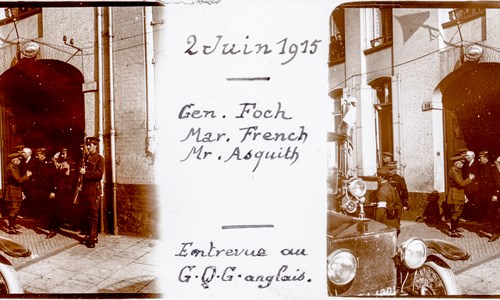 2 Juin 1915
Gen. Foch
Mar. French
Mr. Asquith
Entrevue au
G.Q.G. anglais.